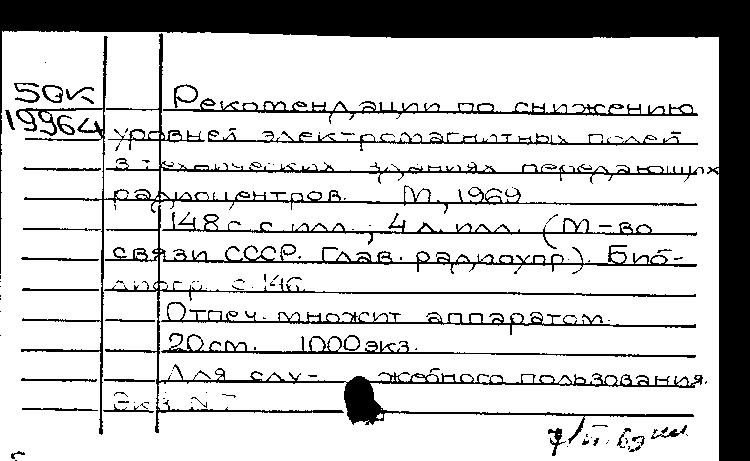 50К
19964
Рекомендации по снижению
уровней электромагнитных полей
в технических зданиях передающих
радиоцентров. М., 1969
148 с. с илл.; 4 л. илл. (М-во
связи СССР. Глав. радиоупр.). Биб-
лиогр. с. 146.
Отпеч. множит аппаратом.
20 см. 1000 экз.
Для слу- жебного пользования.
Экз. N 7